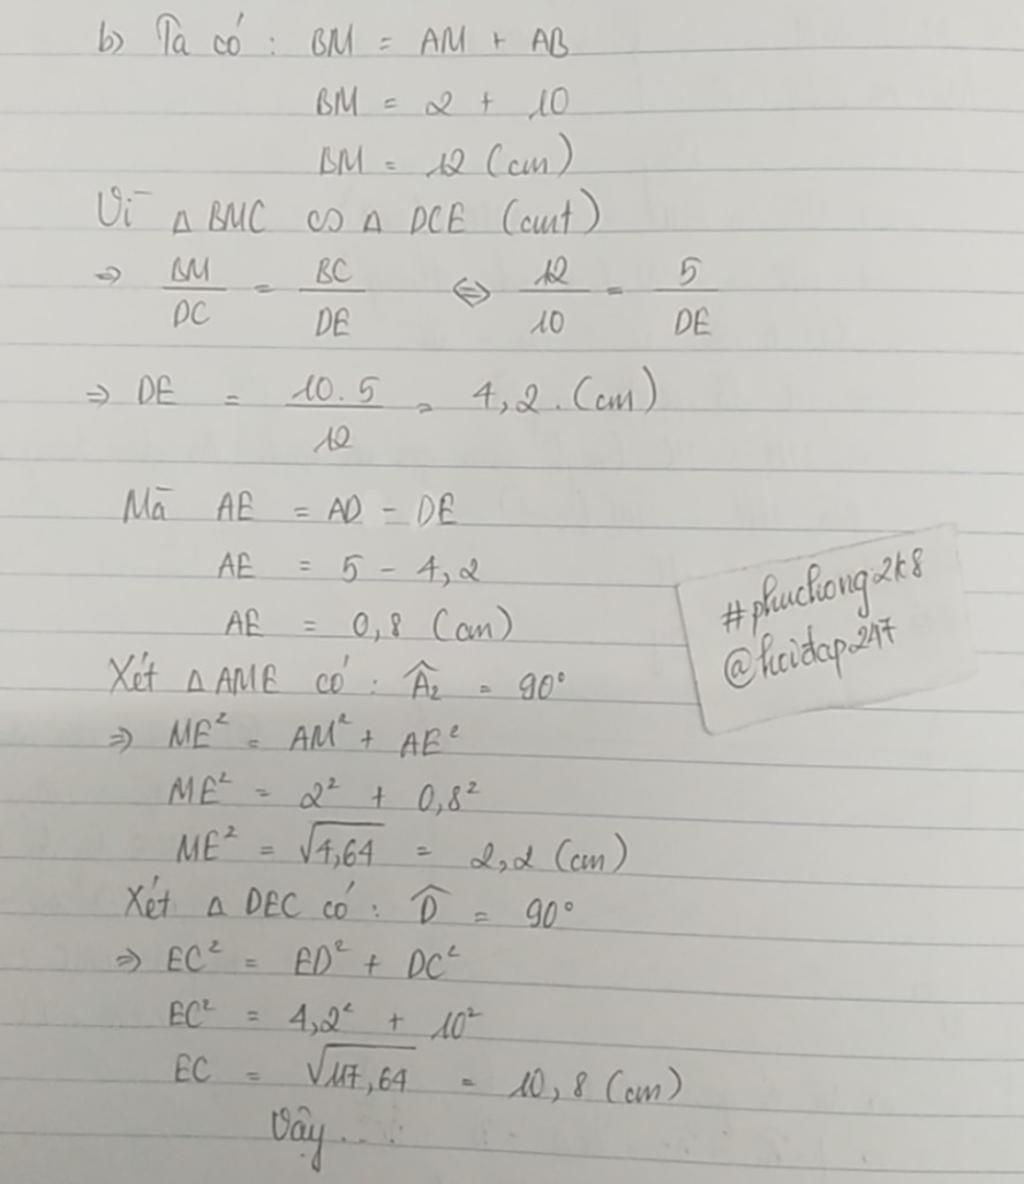 b) Ta có : BM = AM + AB
BM = 2 + 10
BM = 12 (cm)
Vì ΔBMC ∽ Δ DCE (cmt)
⇒ BM/DC = BC/DE ⇔ 12/10 = 5/DE
⇒ DE = 10.5/12 = 4,2. (cm)
Mà AE = AD - DE
AE = 5 - 4,2
AE = 0,8 (cm)
Xét ΔAME có : Â₂ = 90°
⇒ ME² = AM² + AE²
ME² = 2² + 0,8²
ME² = √4,64 = 2,2 (cm)
Xét Δ DEC có : D̂ = 90°
⇒ EC² = ED² + DC²
EC² = 4,2² + 10²
EC = √117,64 = 10,8 (cm)
Vậy....
#phuchong2k8
@hoidap247